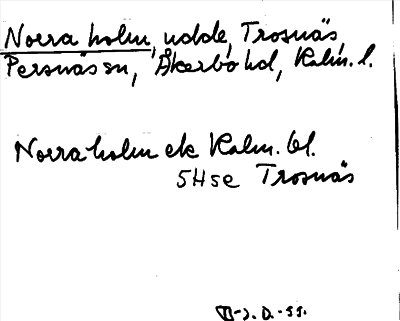 Norra holm, udde, Trosnäs,
Persnäs sn, Åkerbo hd, Kalm. l.
Norra holm ek Kalm. bl.
5H se Trosnäs